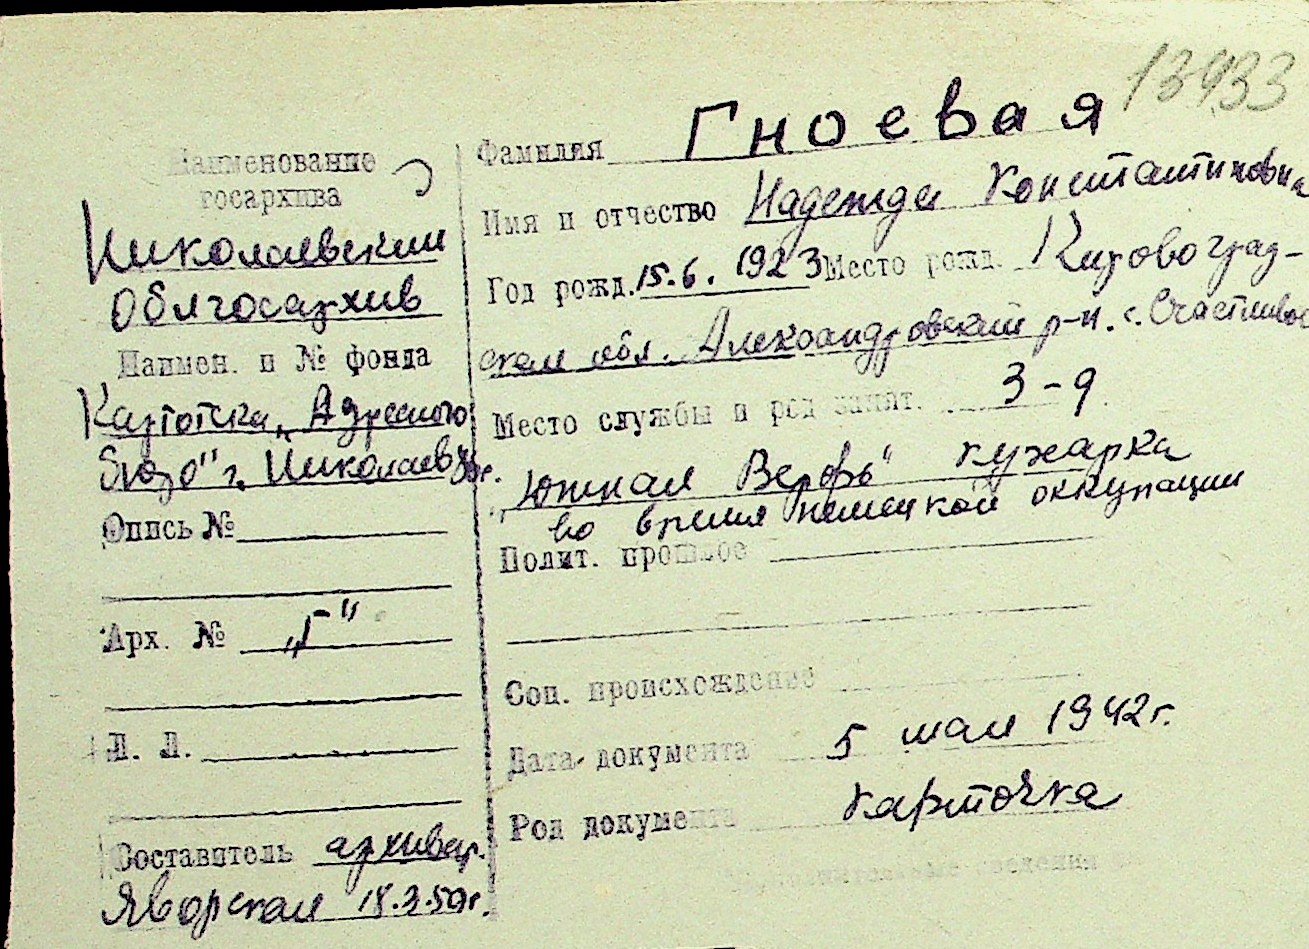 13933
Наименование
госархива
Николаевский
Облгосархив
Наимен. и № фонда
Картотека „Адресного
бюро" г. Николаев
Опись №
Арх. № „Г"
Л. Л.
Составитель архивар.
Яворская 18.3.50г.
Фамилия Гноевая
Имя и отчество Надежда Константиновна
Год рожд. 15.6.1923 Место рожд. Кировоград-
ская обл. Александровский р-н. с. Счастливое
Место службы и род занят. З-д
„Южная Верфь" кухарка
во время немецкой оккупации
Полит. прошлое
Соц. происхождение
Дата документа 5 мая 1942г.
Род документа карточка